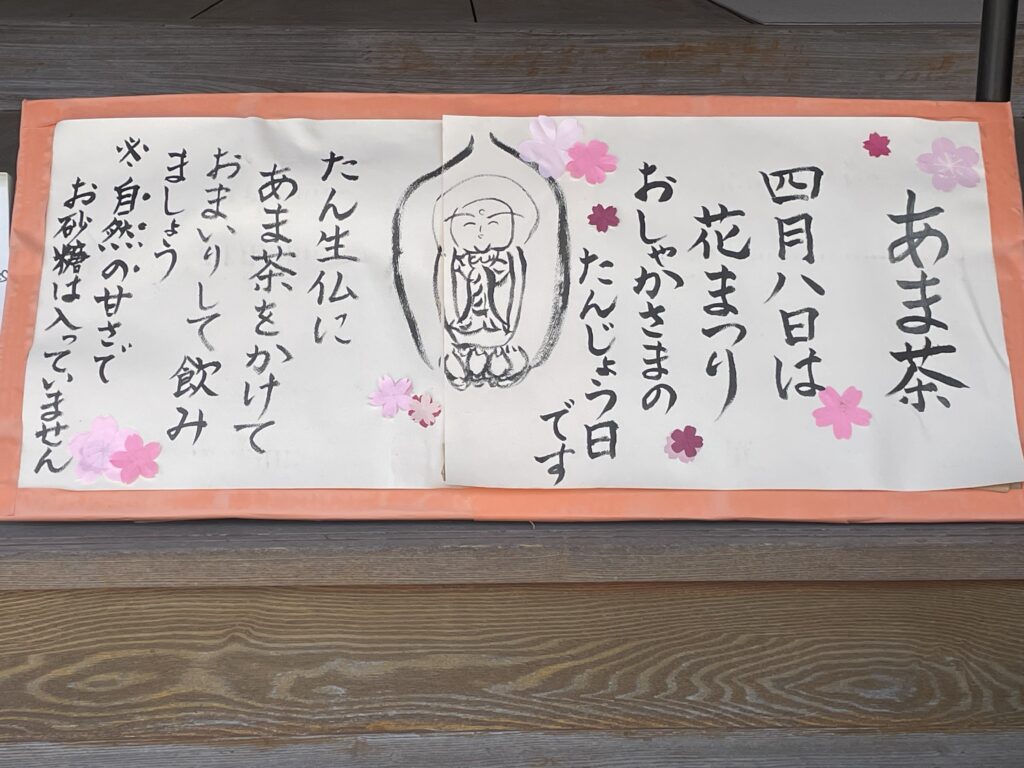 あま茶
四月八日は
花まつり
おしゃかさまの
たんじょう日
です
たん生仏に
あま茶をかけて
おまいりして飲み
ましょう
※自然の甘さで
お砂糖は入っていません